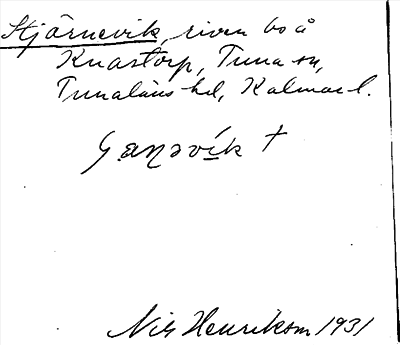 Stjärnevik, riven bo å
Knastorp, Tuna sn,
Tunaläns hd, Kalmar l.
†
Nils Henrikson 1931